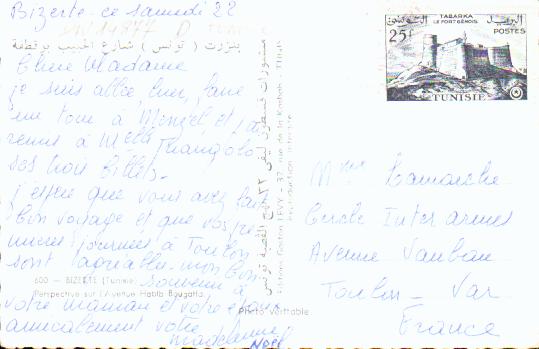 Bizerte ce samedi 22
بنزرت ( تونس ) شارع الحبيب بوقطفة
Chère Madame
je suis allée hier, faire
un tour à Menzel, et j'ai
remis à Melle
ses trois billets.
j'espère que vous avez fait
bon voyage et que vos pre
mières journées à Toulon
sont agréables. mon bon
souvenir à
600 — BIZERTE (Tunisie)
Perspective sur l'Avenue Habib Bougatfa
votre maman et votre époux
amicalement votre
madeleine
Noël
Photo véritable
Editions Gaston LEVY - 37, rue de la Kasbah, Tunis
Reproduction interdite
TABARKA
LE FORT GENOIS
25f
POSTES
TUNISIE
Mme Lamarche
Cercle Inter armes
Avenue Vauban
Toulon - Var
France